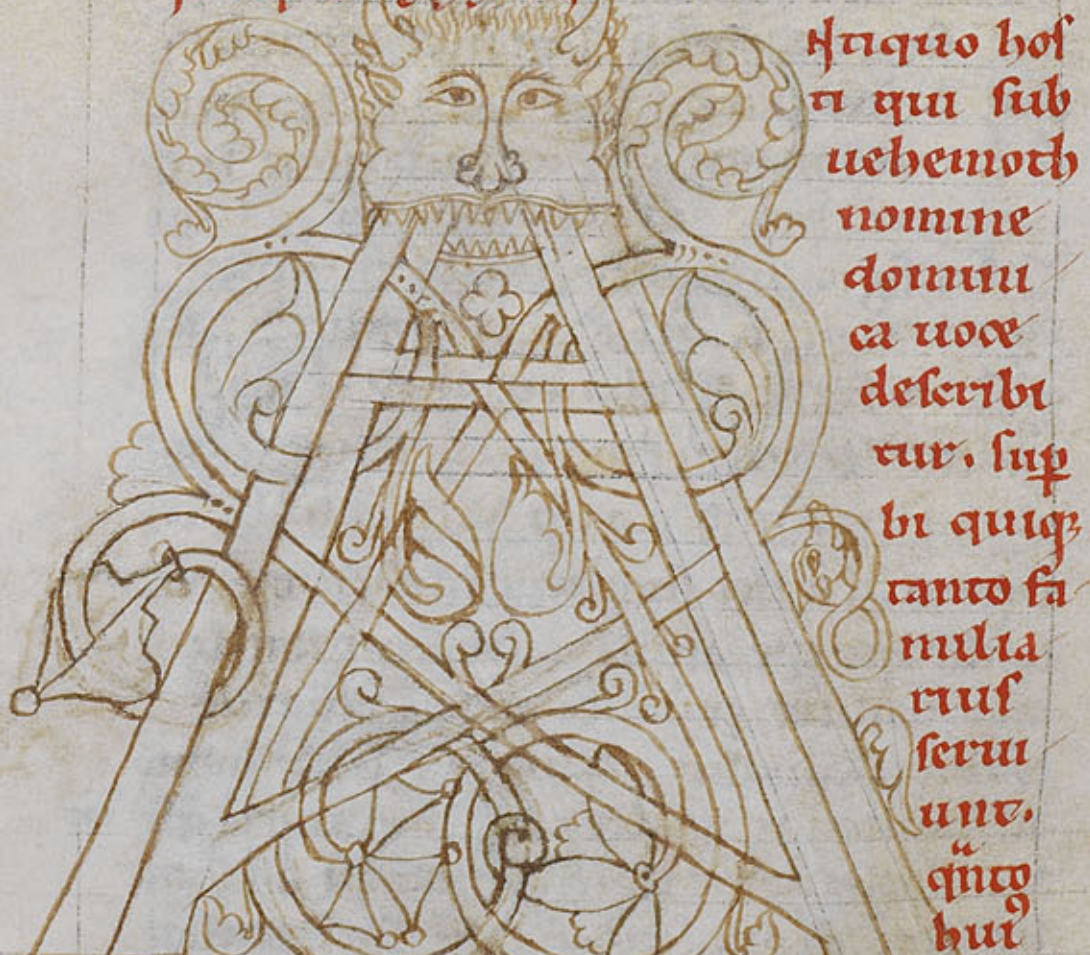 Ntiquo hos
ti qui sub
uehemoth
nomine
domini
ca uoce
describi
tur. sup̲
bi quiq;
tanto fa
milia
rius
serui
unt.
qn̈to
huiꝰ